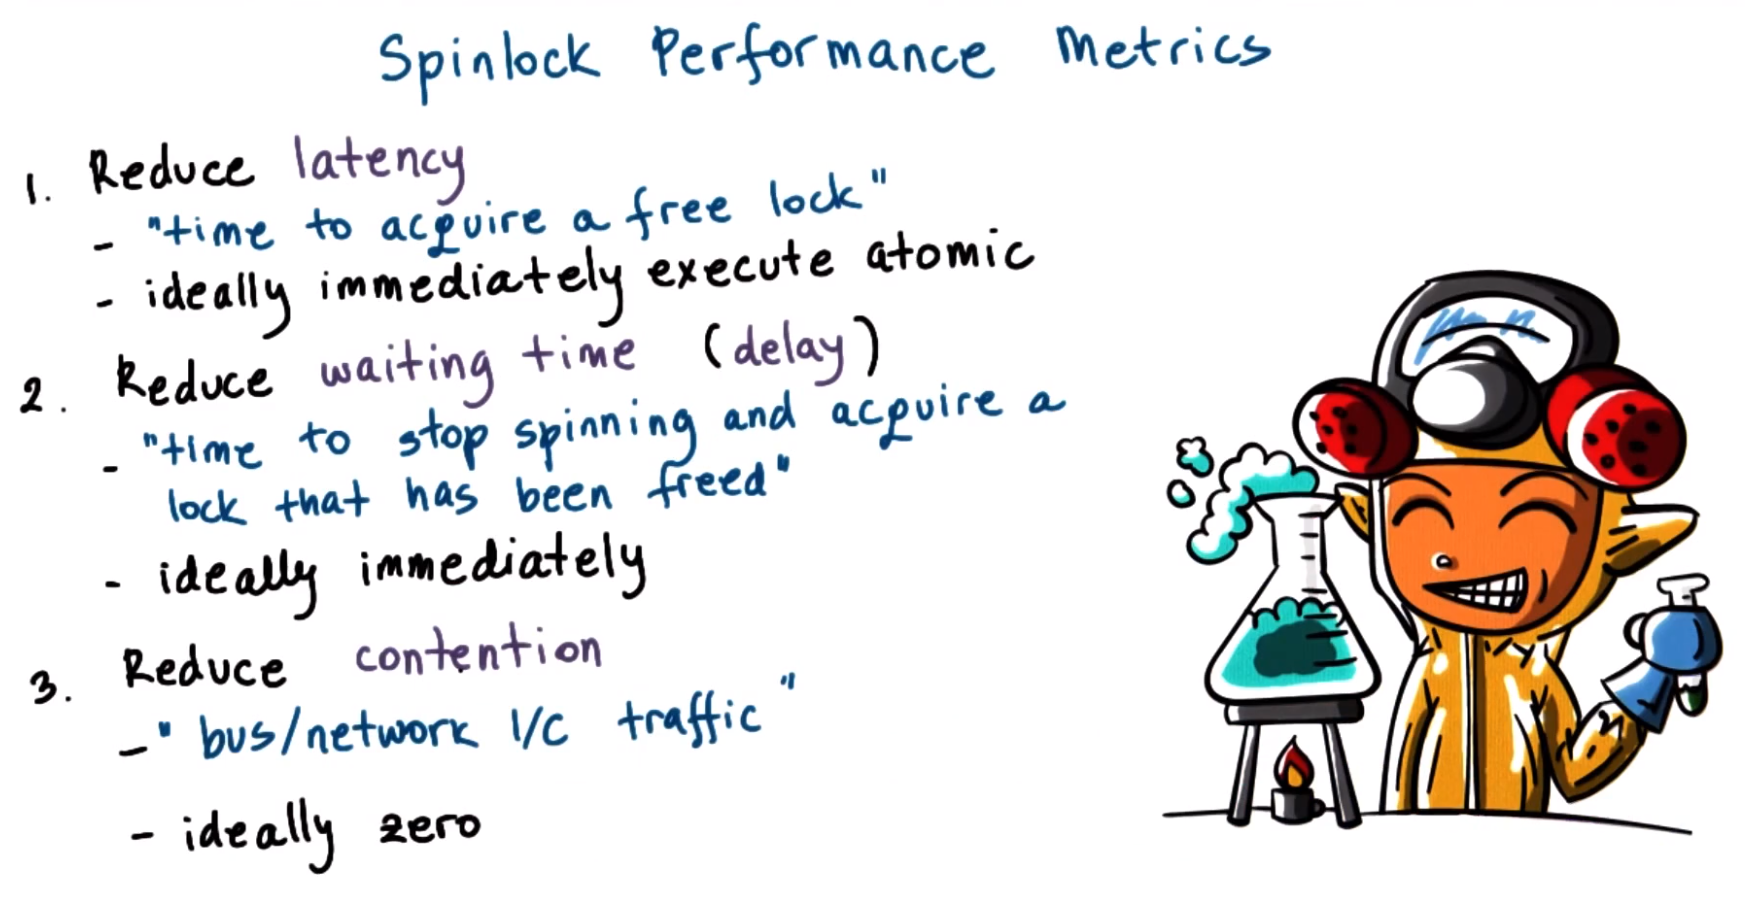 Spinlock Performance Metrics
1. Reduce latency
- "time to acquire a free lock"
- ideally immediately execute atomic
2. Reduce waiting time (delay)
- "time to stop spinning and acquire a
lock that has been freed"
- ideally immediately
3. Reduce contention
- "bus/network I/C traffic"
- ideally zero